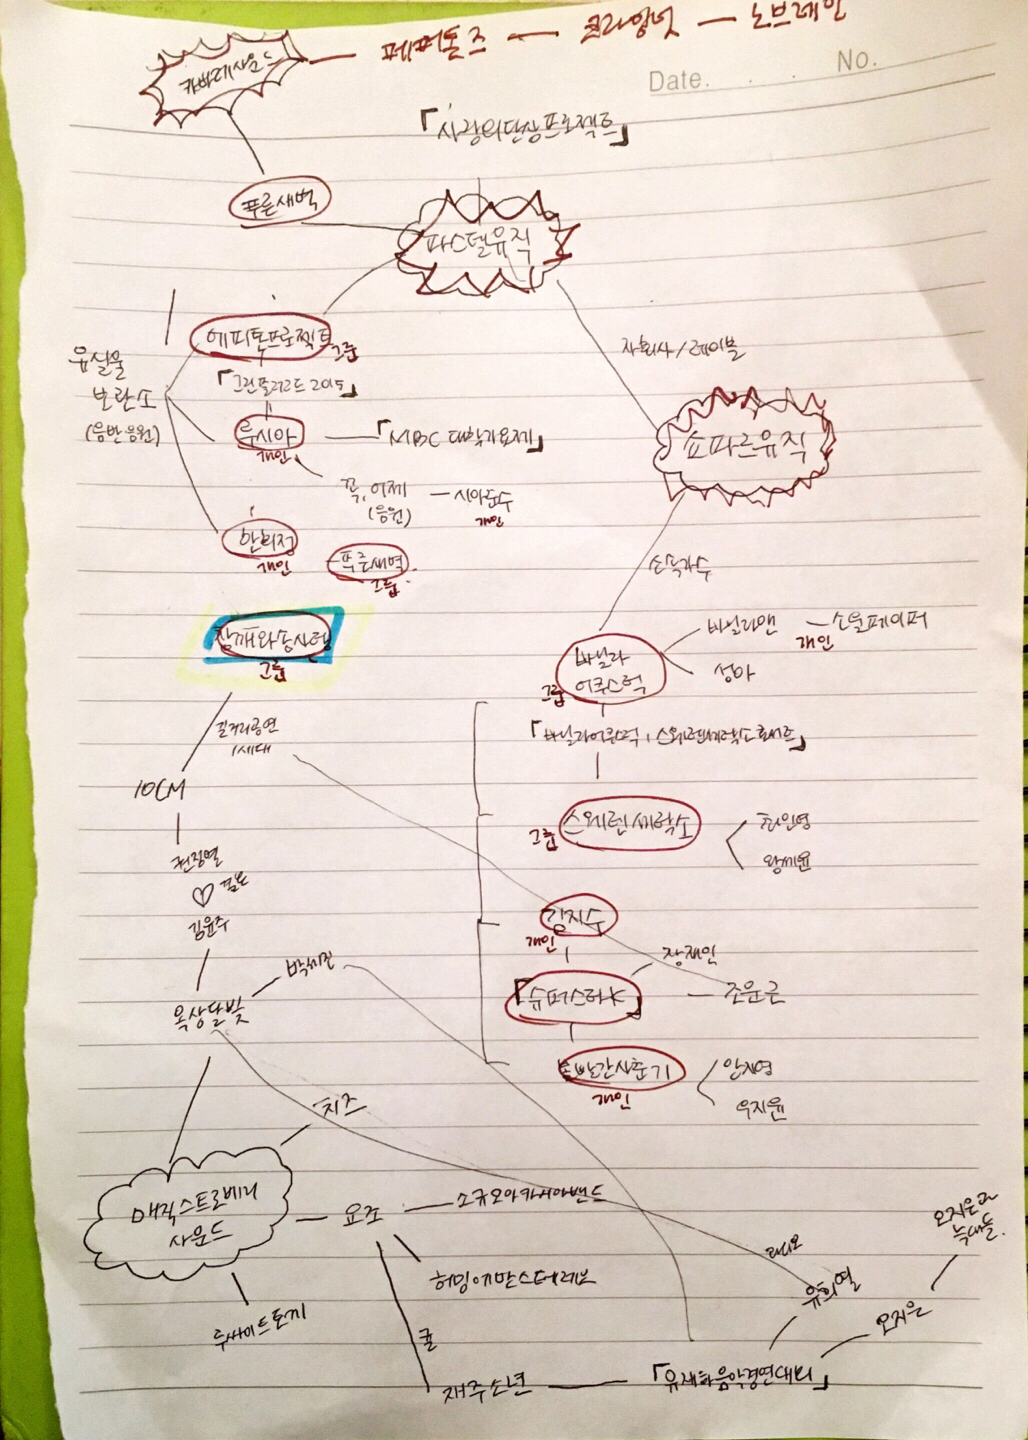 카바레사운드 — 페퍼톤즈 — 크라잉넛 — 노브레인
Date. . . No.
「사랑의단상프로젝트」
푸른새벽
파스텔뮤직
에피톤프로젝트
그룹
자회사/레이블
유실물
보관소
(음반응원)
「그린플러그드 2015」
루시아
개인
「MBC 대학가요제」
쇼파르뮤직
꼭, 어제
(응원)
시아준수
개인
한희정
개인
푸른새벽
그룹
소속가수
참깨와솜사탕
그룹
바닐라
어쿠스틱
그룹
바닐라맨
개인
소울페이퍼
성아
길거리공연
1세대
「바닐라어쿠스틱, 스웨덴세탁소 콘서트」
10CM
스웨덴세탁소
그룹
최인영
왕세윤
권정열
♡ 결혼
김윤주
김지수
개인
박세진
장재인
옥상달빛
「슈퍼스타K」
조문근
볼빨간사춘기
개인
안지영
우지윤
치즈
매직스트로베리
사운드
요조
소규모아카시아밴드
오지은과
늑대들.
라디오
허밍어반스테레오
유희열
오지은
루싸이트토끼
귤
재주소년
「유재하음악경연대회」